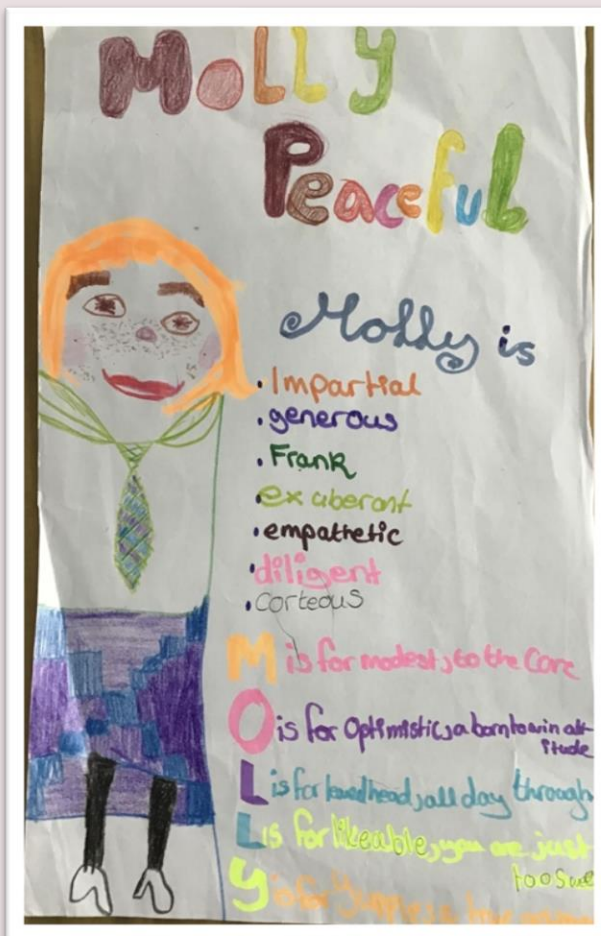 Molly
Peaceful
Molly is
. Impartial
. generous
. Frank
. exuberant
. empathetic
. diligent
. Corteous
M is for modest, to the core
O is for Optimistic, a born to win att-
itude
L is for head, all day through
L is for likeable, you are just
too
Y is for